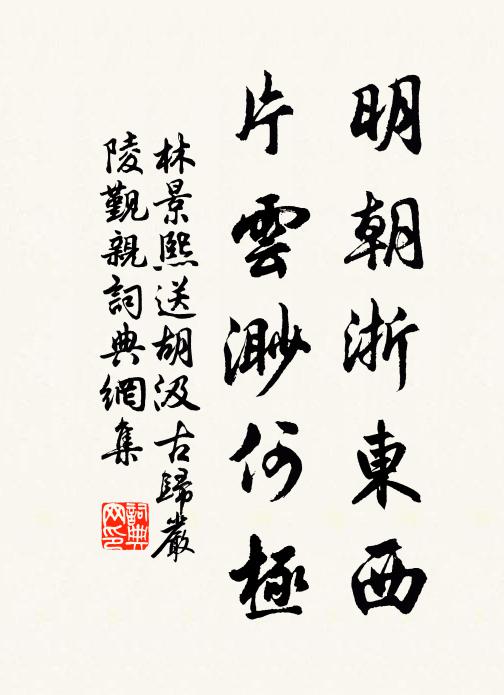 明朝浙東西
片雲渺何極
林景熙送胡汲古歸嚴
陵覲親詞典網集
詞典网印